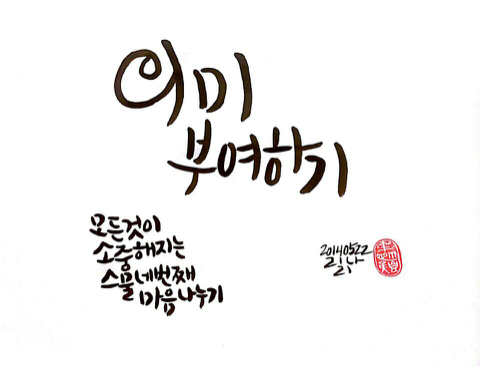 의미
부여하기
모든것이
소중해지는
스물네번째
마음나누기
20140522